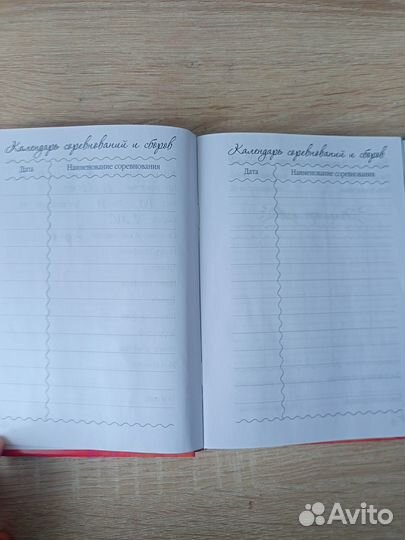 Календарь соревнований и сборов
Дата Наименование соревнования
Календарь соревнований и сборов
Дата Наименование соревнования
Avito